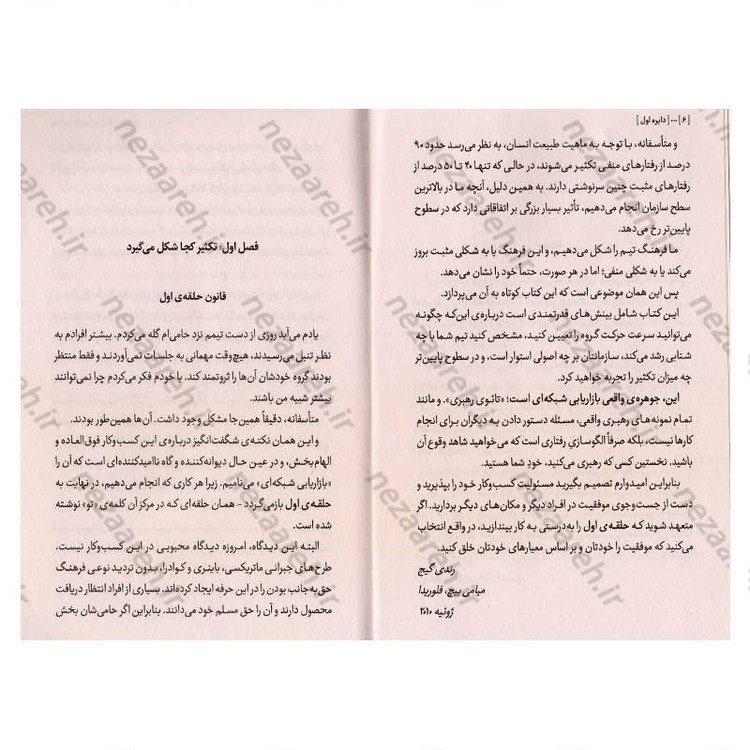 [ ۶ ] ... [ دایره اول ]
و متأسفانه، با توجه به ماهیت طبیعت انسان، به نظر می‌رسد حدود ۹۰
درصد از رفتارهای منفی تکثیر می‌شوند، در حالی که تنها ۴۰ تا ۵۰ درصد از
رفتارهای مثبت چنین سرنوشتی دارند. به همین دلیل، آنچه ما در بالاترین
سطح سازمان انجام می‌دهیم، تأثیر بسیار بزرگی بر اتفاقاتی دارد که در سطوح
پایین‌تر رخ می‌دهد.
ما فرهنگ تیم را شکل می‌دهیم، و این فرهنگ یا به شکلی مثبت بروز
می‌کند یا به شکلی منفی؛ اما در هر صورت، حتماً خود را نشان می‌دهد.
پس این همان موضوعی است که این کتاب کوتاه به آن می‌پردازد.
این کتاب شامل بینش‌های قدرتمندی است درباره‌ی این‌که چگونه
می‌توانید سرعت حرکت گروه را تعیین کنید، مشخص کنید تیم شما با چه
شتابی رشد می‌کند، سازمانتان بر چه اصولی استوار است، و در سطوح پایین‌تر
چه میزان تکثیر را تجربه خواهید کرد.
این، جوهره‌ی واقعی بازاریابی شبکه‌ای است؛ «تائوی رهبری». و مانند
تمام نمونه‌های رهبری واقعی، مسئله دستور دادن به دیگران برای انجام
کارها نیست، بلکه صرفاً الگوسازیِ رفتاری است که می‌خواهید شاهد وقوع آن
باشید. نخستین کسی که رهبری می‌کنید، خودِ شما هستید.
بنابراین امیدوارم تصمیم بگیرید مسئولیت کسب‌وکار خود را بپذیرید و
دست از جست‌وجوی موفقیت در افراد دیگر و مکان‌های دیگر بردارید. اگر
متعهد شوید که حلقه‌ی اول را به‌درستی به کار بیندازید، در واقع انتخاب
می‌کنید که موفقیت را خودتان و بر اساس معیارهای خودتان خلق کنید.
رندی گیج
میامی بیچ، فلوریدا
ژوئیه ۲۰۱۰
فصل اول: تکثیر کجا شکل می‌گیرد
قانون حلقه‌ی اول
یادم می‌آید روزی از دست تیمم نزد حامی‌ام گله می‌کردم. بیشتر افرادم به
نظر تنبل می‌رسیدند، هیچ‌وقت مهمانی به جلسات نمی‌آوردند و فقط منتظر
بودند گروه خودشان آن‌ها را ثروتمند کند. با خودم فکر می‌کردم چرا نمی‌توانند
بیشتر شبیه من باشند.
متأسفانه، دقیقاً همین‌جا مشکل وجود داشت. آن‌ها همین‌طور بودند.
و این همان نکته‌ی شگفت‌انگیز درباره‌ی این کسب‌وکار فوق‌العاده و
الهام‌بخش، و در عین حال دیوانه‌کننده و گاه ناامیدکننده‌ای است که آن را
«بازاریابی شبکه‌ای» می‌نامیم. زیرا هر کاری که انجام می‌دهیم، در نهایت به
حلقه‌ی اول بازمی‌گردد – همان حلقه‌ای که در مرکز آن کلمه‌ی «تو» نوشته
شده است.
البته این دیدگاه، امروزه دیدگاه محبوبی در این کسب‌وکار نیست.
طرح‌های جبرانی ماتریکسی، باینری و کوادرا، بدون تردید نوعی فرهنگ
حق‌به‌جانب بودن را در این حرفه ایجاد کرده‌اند. بسیاری از افراد انتظار دریافت
محصول دارند و آن را حق مسلم خود می‌دانند. بنابراین اگر حامی‌شان بخش
nezaareh.ir
nezaareh.ir
nezaareh.ir
nezaareh.ir
nezaareh.ir
nezaareh.ir
nezaareh.ir